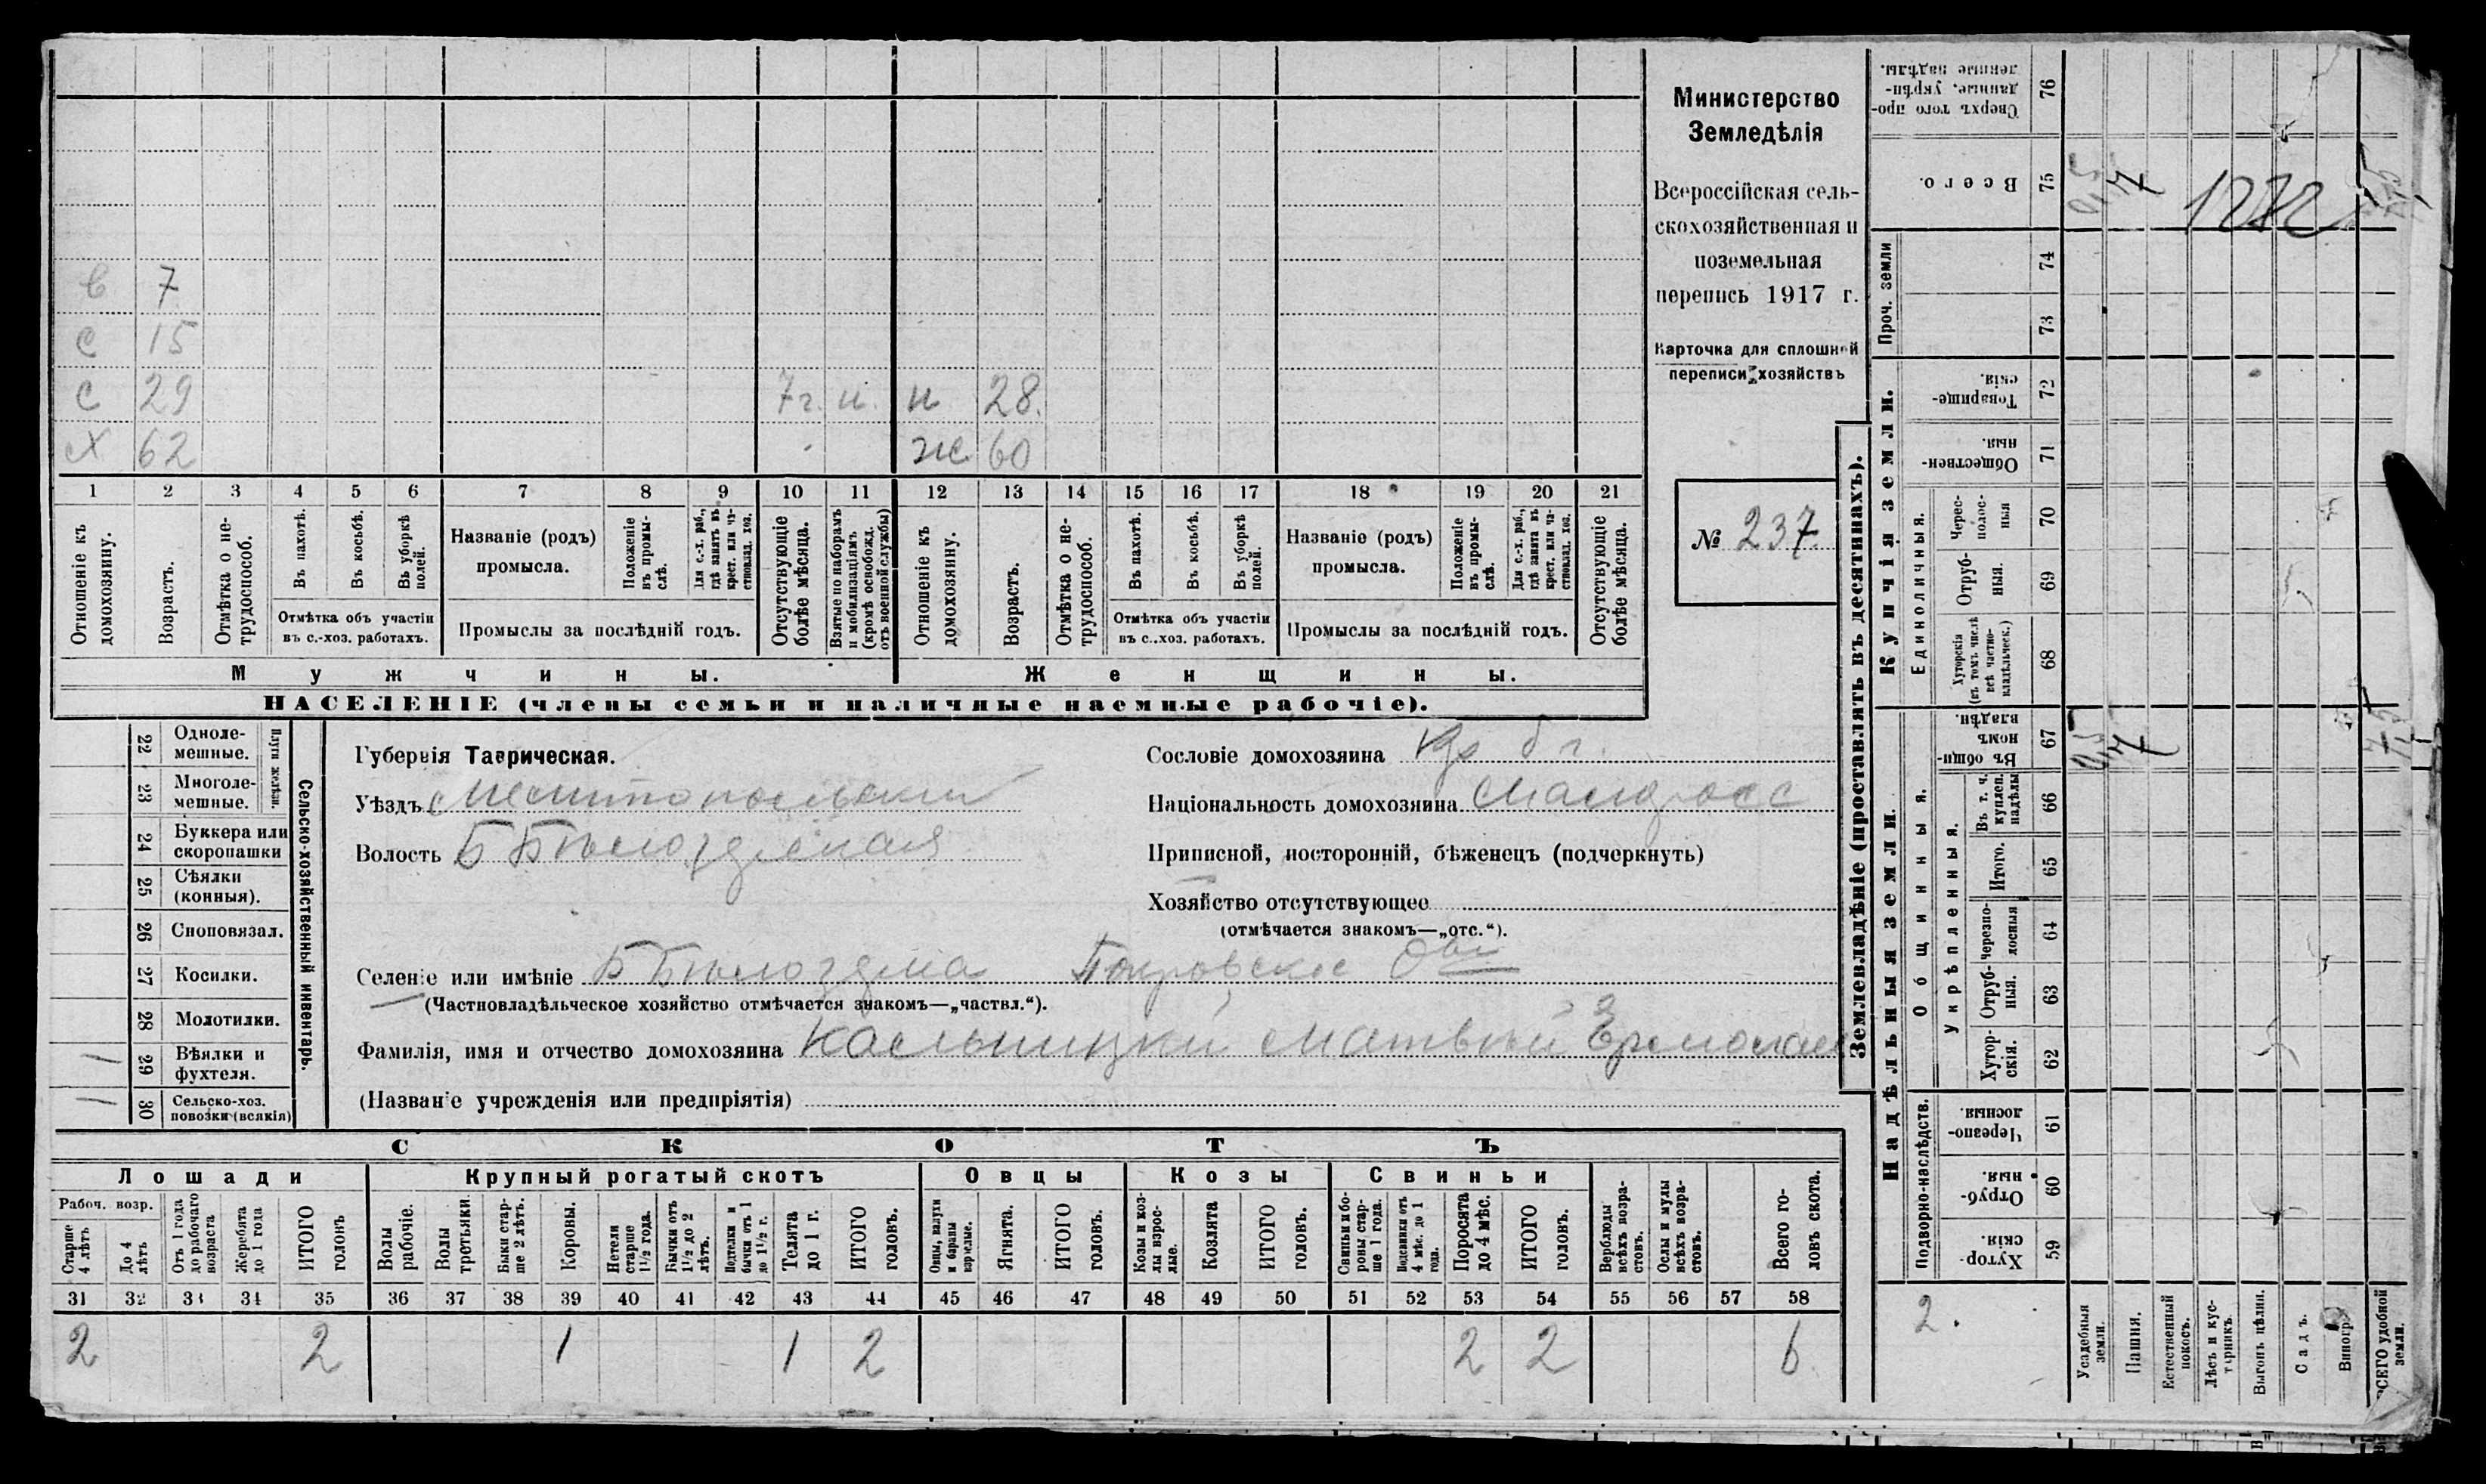 в 7
с 15
с 29 7 г. н. н 28.
Х 62 ж 60
1 2 3 4 5 6 7 8 9 10 11 12 13 14 15 16 17 18 19 20 21
Отношеніе къ домохозяину.
Возрастъ.
Отмѣтка о не-трудоспособ.
Въ пахотѣ.
Въ косьбѣ.
Въ уборкѣ полей.
Отмѣтка объ участіи
въ с.-хоз. работахъ.
Названіе (родъ)
промысла.
Положеніе въ промы-слѣ.
Для с.-х. раб., гдѣ занятъ въ крест. или ча-стновлад. хоз.
Промыслы за послѣдній годъ.
Отсутствующіе болѣе мѣсяца.
Взятые по наборамъ и мобилизаціямъ (кромѣ освобожд. отъ военной службы)
Отношеніе къ домохозяину.
Возрастъ.
Отмѣтка о не-трудоспособ.
Въ пахотѣ.
Въ косьбѣ.
Въ уборкѣ полей.
Отмѣтка объ участіи
въ с.-хоз. работахъ.
Названіе (родъ)
промысла.
Положеніе въ промы-слѣ.
Для с.-х. раб., гдѣ занята въ крест. или ча-стновлад. хоз.
Промыслы за послѣдній годъ.
Отсутствующіе болѣе мѣсяца.
Мужчины. Женщины.
НАСЕЛЕНІЕ (члены семьи и наличные наемные рабочіе).
Министерство
Земледѣлія
Всероссійская сель-
скохозяйственная и
поземельная
перепись 1917 г.
Карточка для сплошной
переписи хозяйствъ
№ 237
22 Одноле-мешные.
23 Многоле-мешные.
Плуги желѣзн.
24 Буккера или скоропашки
25 Сѣялки (конныя).
26 Сноповязал.
27 Косилки.
28 Молотилки.
29 Вѣялки и фухтеля.
30 Сельско-хоз. повозки (всякія)
Сельско-хозяйственный инвентарь.
Губернія Таврическая.
Уѣздъ Мелитопольский
Волость Б Бѣлозерская
Сословіе домохозяина
Національность домохозяина малоросс
Приписной, посторонній, бѣженецъ (подчеркнуть)
Хозяйство отсутствующее
(отмѣчается знакомъ—„отс.“).
Селеніе или имѣніе Б Бѣлозерка Покровское О-во
(Частновладѣльческое хозяйство отмѣчается знакомъ—„частвл.“).
Фамилія, имя и отчество домохозяина Кальницкий Матвѣй Ермолаев
(Названіе учрежденія или предпріятія)
СКОТЪ
Лошади Крупный рогатый скотъ Овцы Козы Свиньи
Рабоч. возр.
Старше 4 лѣтъ
До 4 лѣтъ
Отъ 1 года до рабочаго возраста
Жеребята до 1 года
ИТОГО головъ
Волы рабочіе.
Волы третьяки
Быки стар-ше 2 лѣтъ.
Коровы.
Нетели старше 1½ года.
Бычки отъ 1½ до 2 лѣтъ.
Подтелки и бычки отъ 1 до 1½ г.
Телята до 1 г.
ИТОГО головъ.
Овцы, валухи и бараны взрослые.
Ягнята.
ИТОГО головъ.
Козы и коз-лы взрос-лые.
Козлята
ИТОГО головъ.
Свиньи и бо-ровы стар-ше 1 года.
Подсвинки отъ 4 мѣс. до 1 года.
Поросята до 4 мѣс.
ИТОГО головъ.
Верблюды всѣхъ возра-стовъ.
Ослы и мулы всѣхъ возра-стовъ.
Всего го-ловъ скота.
31 32 33 34 35 36 37 38 39 40 41 42 43 44 45 46 47 48 49 50 51 52 53 54 55 56 57 58
2 2 1 1 2 2 2 6
Землевладѣніе (проставлять въ десятинахъ).
Сверхъ того про-данные, укрѣп-ленные надѣлы. 76
Всего. 75
1272
Проч. земли 74
73
Купчія земли.
Товарище-скія. 72
Обществен-ныя. 71
Единоличныя.
Черес-полос-ныя 70
Отруб-ныя. 69
Хуторскія (въ томъ числѣ всѣ частно-владѣльческ.) 68
Надѣльныя земли.
Общинныя.
Въ общи-номъ владѣн. 67
Укрѣпленныя.
Въ т. ч. куплен. надѣлы 66
Итого. 65
Черезпо-лосныя 64
Отруб-ныя. 63
Хутор-скія. 62
Подворно-наслѣдств.
Черезпо-лосныя. 61
Отруб-ныя. 60
Хутор-скія. 59
2.
Усадебныя земли.
Пашня.
Естественный покосъ.
Лѣсъ и кус-тарникъ.
Выгонъ цѣлин.
Садъ.
Виногр.
ВСЕГО удобной земли.